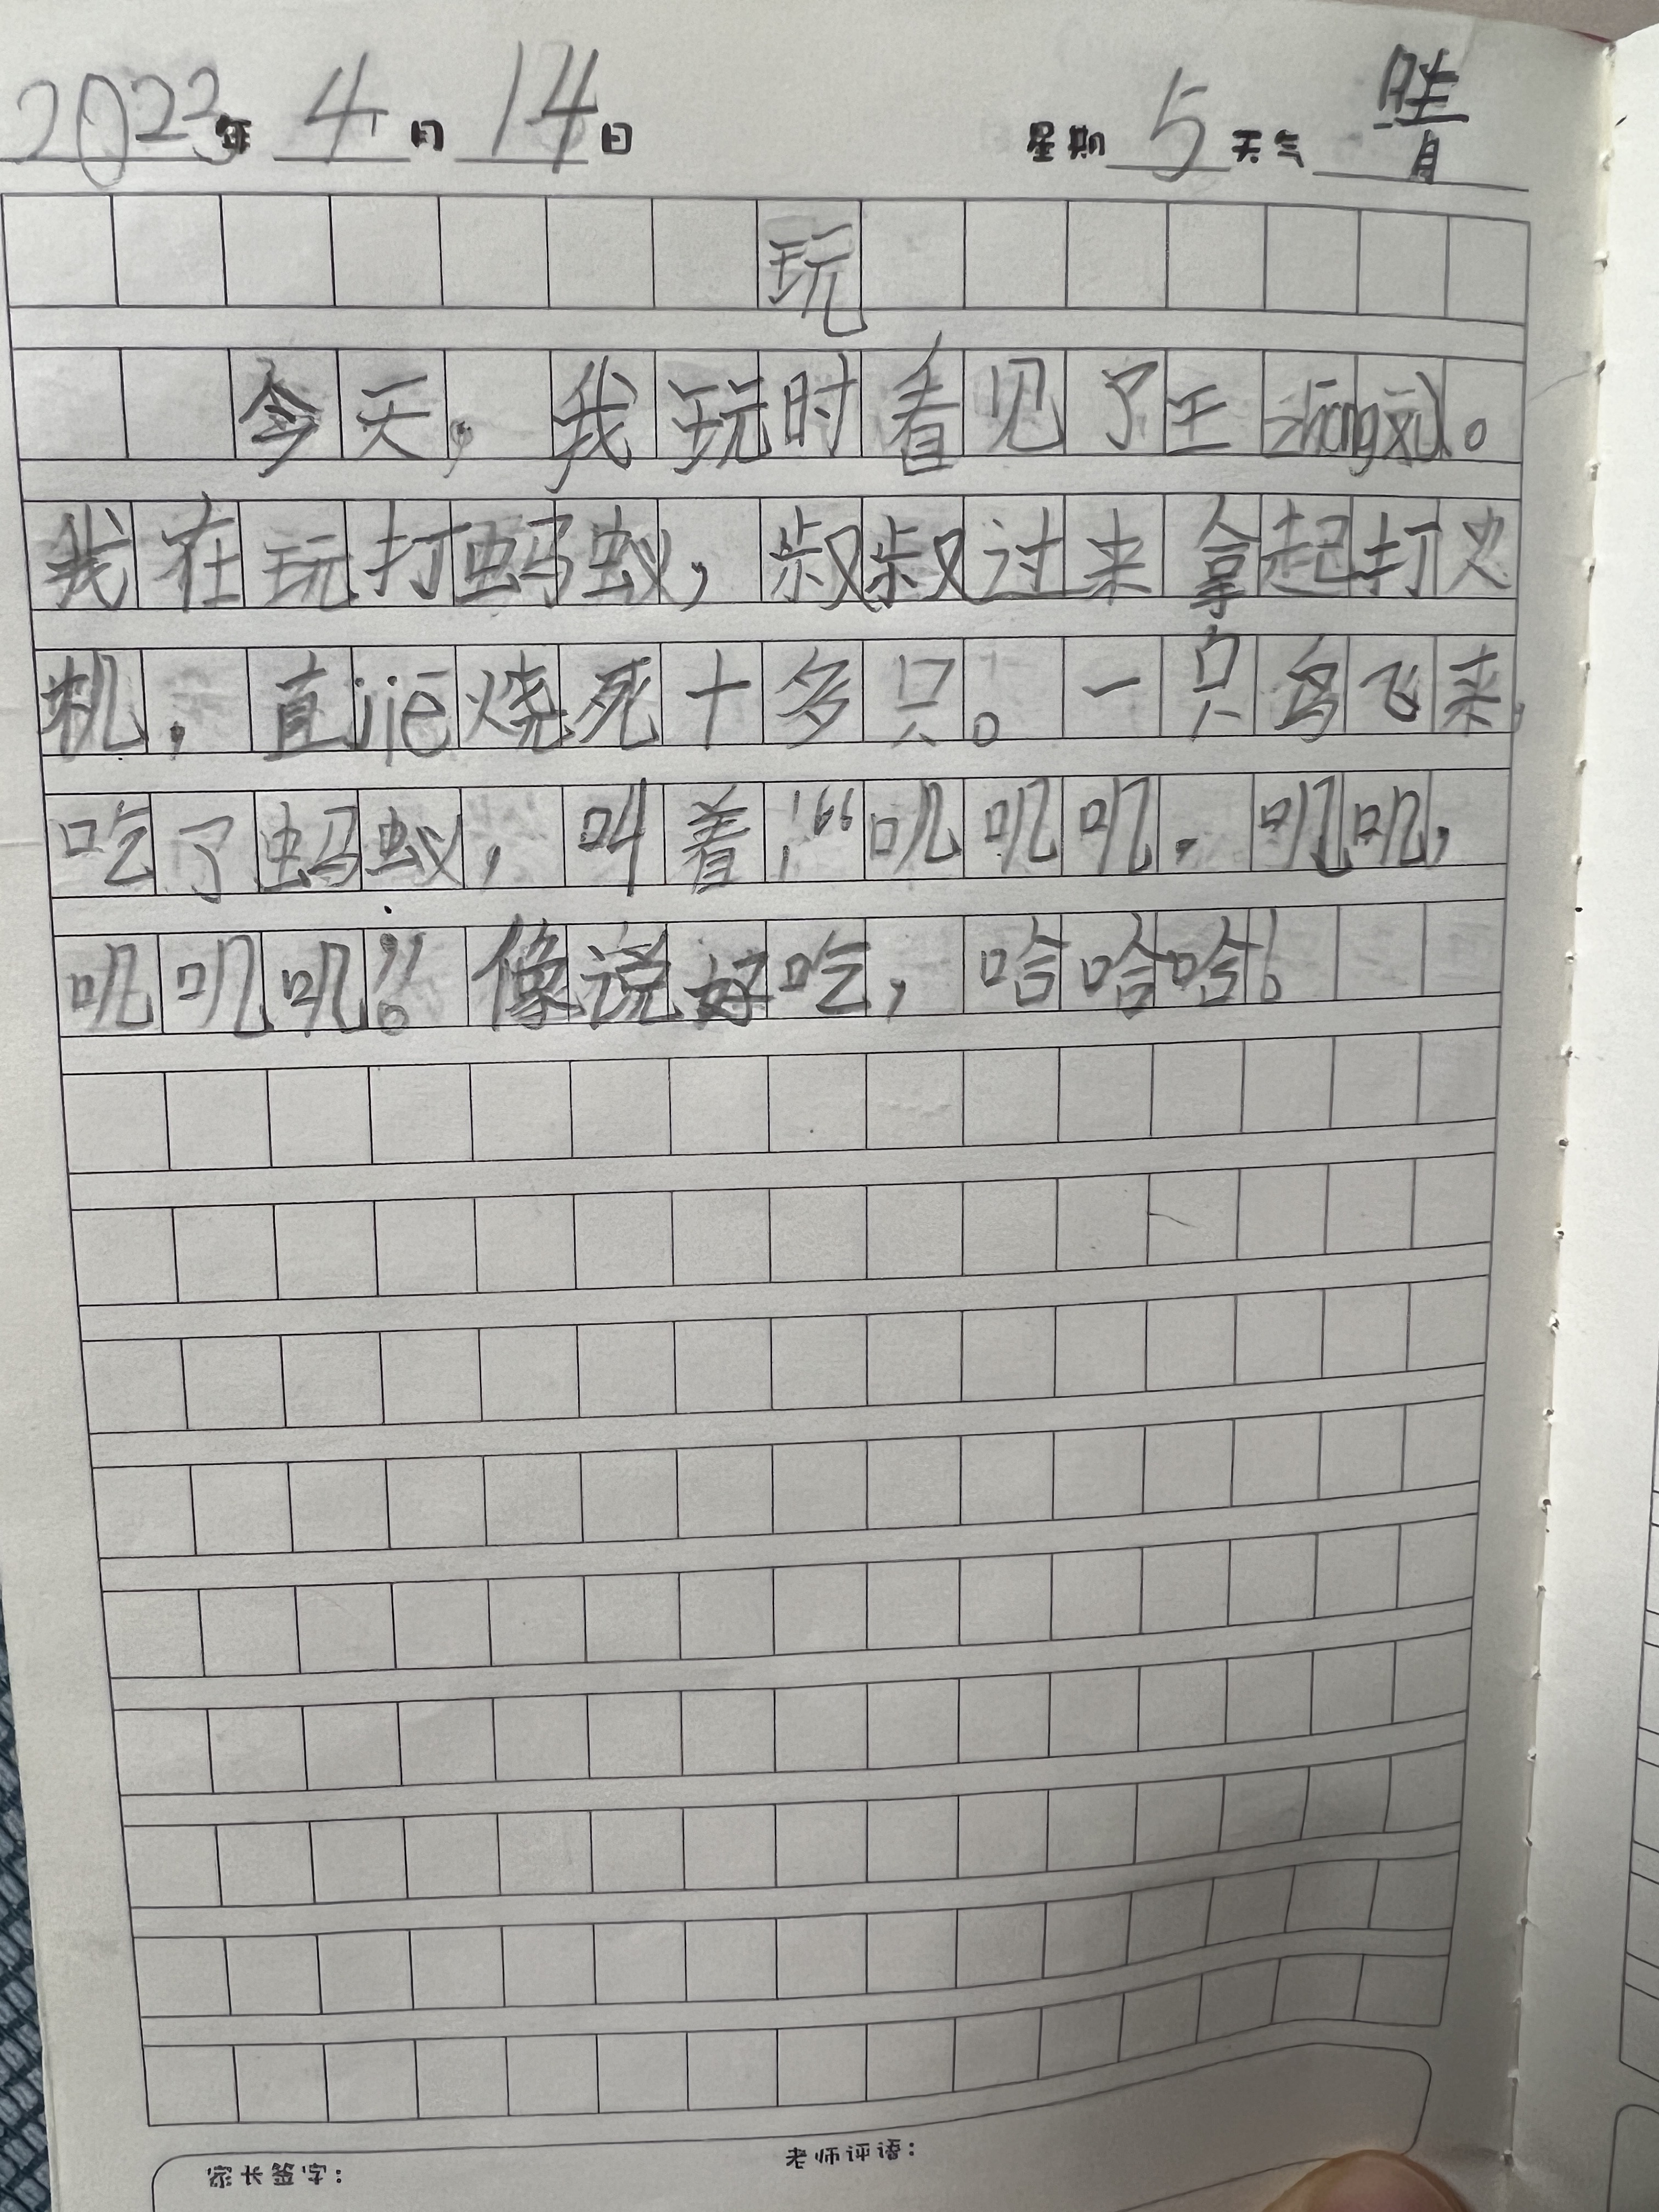 2023年 4月 14日 星期 5 天气 晴
玩
今天，我玩时看见了王zhōngxù。
我在玩打蚂蚁，叔叔过来拿起打火
机，直jiē烧死十多只。一只鸟飞来，
吃了蚂蚁，叫着：“叽叽叽，叽叽，
叽叽叽！”像说好吃，哈哈哈！
家长签字： 老师评语：